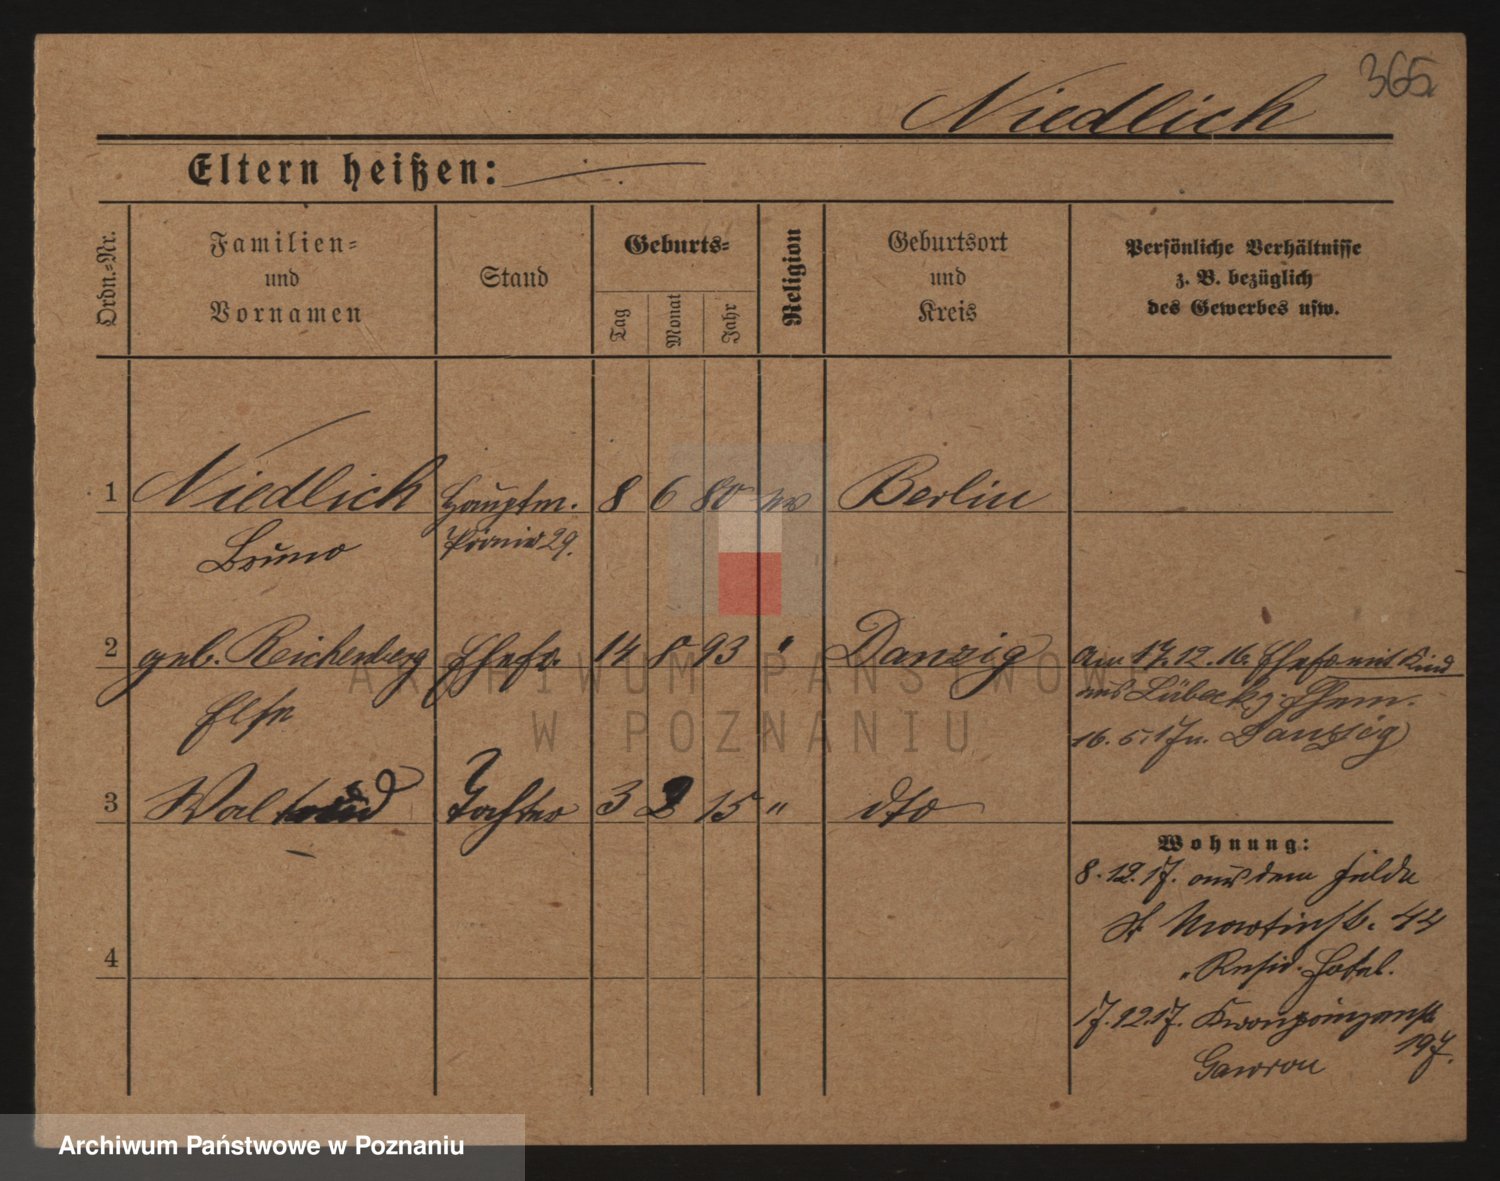 365
Niedlich
Eltern heißen:
Ordn.-Nr.
Familien-
und
Vornamen
Stand
Geburts-
Tag
Monat
Jahr
Religion
Geburtsort
und
Kreis
Persönliche Verhältnisse
z. B. bezüglich
des Gewerbes usw.
1 Niedlich Hauptm. 8 6 80 ev Berlin
Bruno Pionier 29.
2 geb. Reichenberg Ehefr. 14 8 93 " Danzig
Else
Am 17.12.16. Ehefr mit Kind
aus Lübeck z. Ehem.
16. 5. 17 n. Danzig
3 Waltraud Tochter 3 2 15 " dto
4
Wohnung:
8. 12. 17. aus dem Felde
St Martinstr. 44
Resid. Hotel.
17.12.17. Kronprinzenstr
197.
Gawron
ARCHIWUM PAŃSTWOWE
W POZNANIU
Archiwum Państwowe w Poznaniu